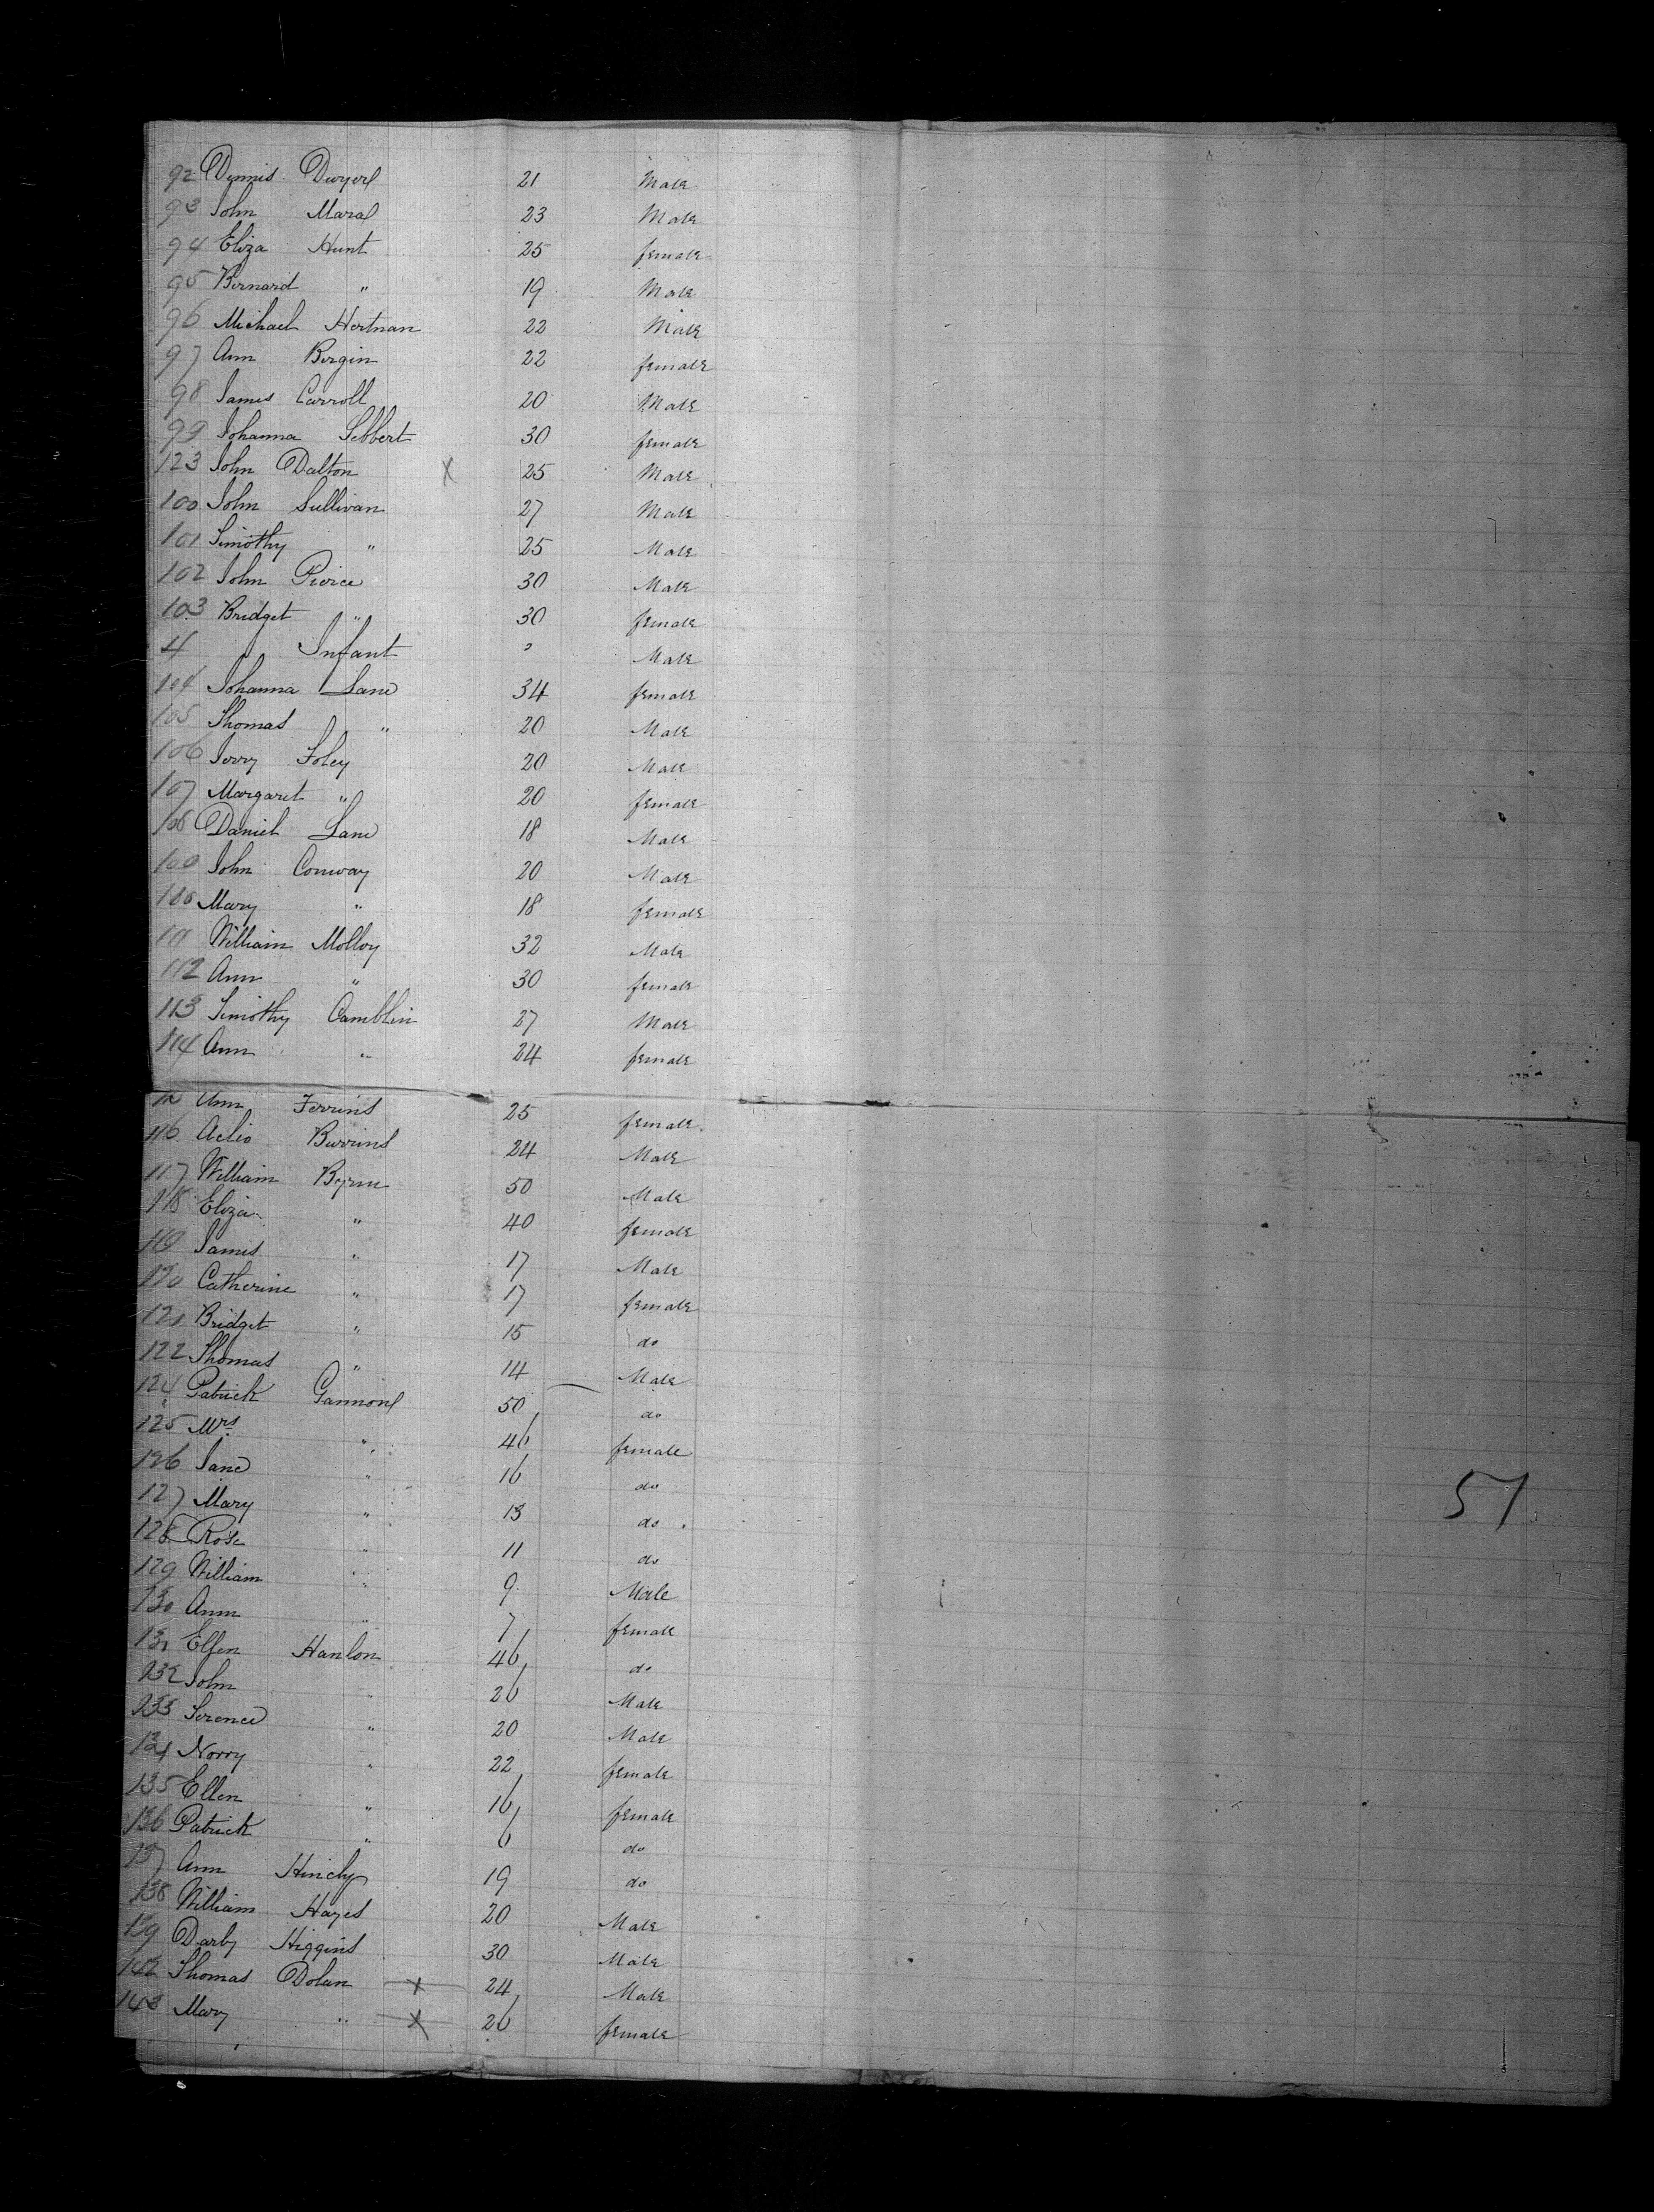 92 Dennis Dwyer 21 Male
93 John Maral 23 Male
94 Eliza Hunt 25 female
95 Bernard " 19 Male
96 Michael Hertnan 22 Male
97 Ann Bergin 22 female
98 James Carroll 20 Male
99 Johanna 30 female
123 John Dalton X 25 Male
100 John Sullivan 27 Male
101 Timothy " 25 Male
102 John Pierce 30 Male
103 Bridget " 30 female
4 Infant " Male
104 Johanna Lane 34 female
105 Thomas " 20 Male
106 Jerry Foley 20 Male
107 Margaret " 20 female
108 Daniel Lane 18 Male
109 John Conway 20 Male
110 Mary " 18 female
111 William Molloy 32 Male
112 Ann " 30 female
113 Timothy Camblin 27 Male
114 Ann " 24 female
Ann Ferrins 25 female
116 Burrins 24 Male
117 William Byrne 50 Male
118 Eliza " 40 female
119 James " 17 Male
120 Catherine " 17 female
121 Bridget " 15 do
122 Thomas " 14 Male
124 Patrick Gannon 50 do
125 Mrs " 46 female
126 Jane " 16 do
127 Mary " 13 do
128 Rose " 11 do
129 William " 9 Male
130 Ann " 7 female
131 Ellen Hanlon 46 do
132 John " 26 Male
133 Terence " 20 Male
134 Norry " 22 female
135 Ellen " 16 female
136 Patrick " 6 do
137 Ann Hinchy 19 do
138 William Hayes 20 Male
139 Darby Higgins 30 Male
142 Thomas Dolan X 24 Male
143 Mary " X 26 female
57